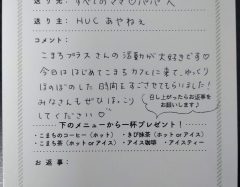 送り先: すべてのママ♡パパへ
送り主: HUC あやねぇ
コメント:
こまちプラスさんの活動が大好きです♡
今日ははじめてこまちカフェに来て、ゆっくり
ほのぼのした時間をすごさせてもらいました!
みなさんもぜひほっこり
してください♡
召し上がったらお返事を
お願いします♪
下のメニューから一杯プレゼント!
・こまちのコーヒー(ホット) ・きび抹茶(ホット or アイス)
・こまち茶(ホット or アイス) ・アイス珈琲 ・アイスティー
お返事: